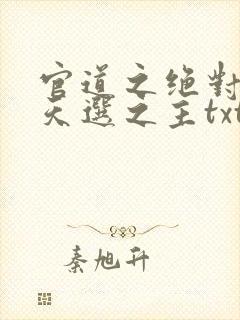 官道之绝對
天選之主txt
秦旭升